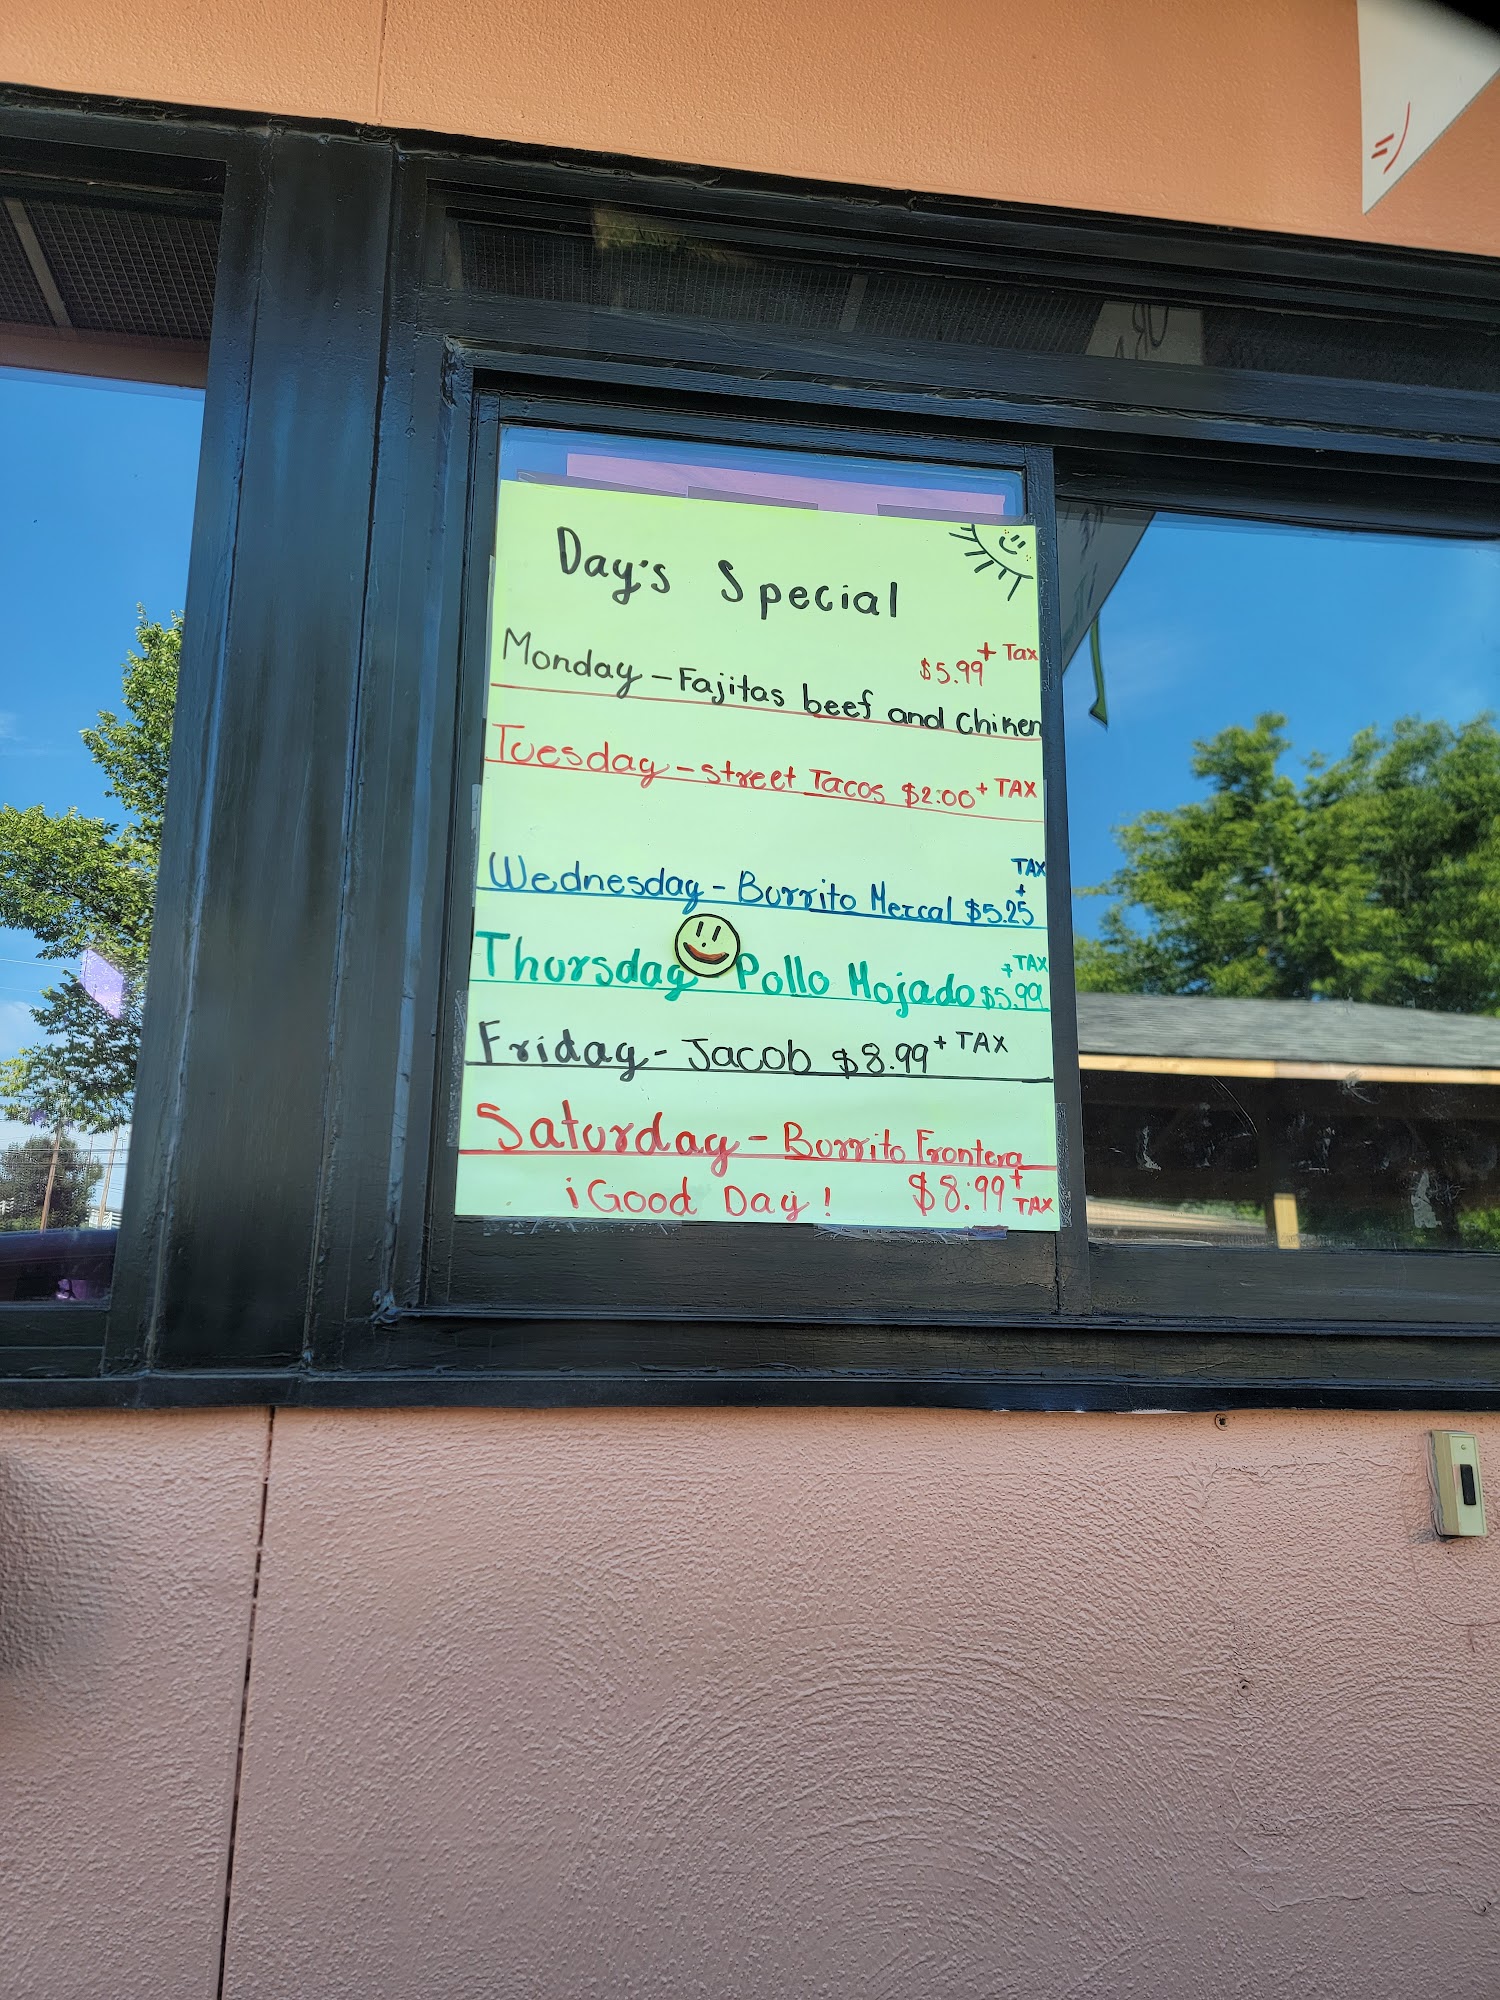 Day's Special
$5.99 + Tax
Monday - Fajitas beef and Chiken
Tuesday - street Tacos $2.00 + TAX
Wednesday - Burrito Mercal $5.25 + TAX
Thursday Pollo Mojado $5.99 + TAX
Friday - Jacob $8.99 + TAX
Saturday - Burrito Frontera
¡Good Day! $8.99 + TAX